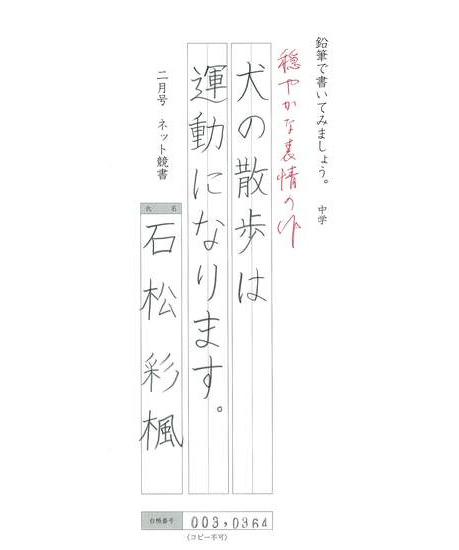 鉛筆で書いてみましょう。 中学
穏やかな表情の作
犬の散歩は
運動になります。
二月号 ネット競書
氏名
石松彩楓
台帳番号 003,0364
(コピー不可)